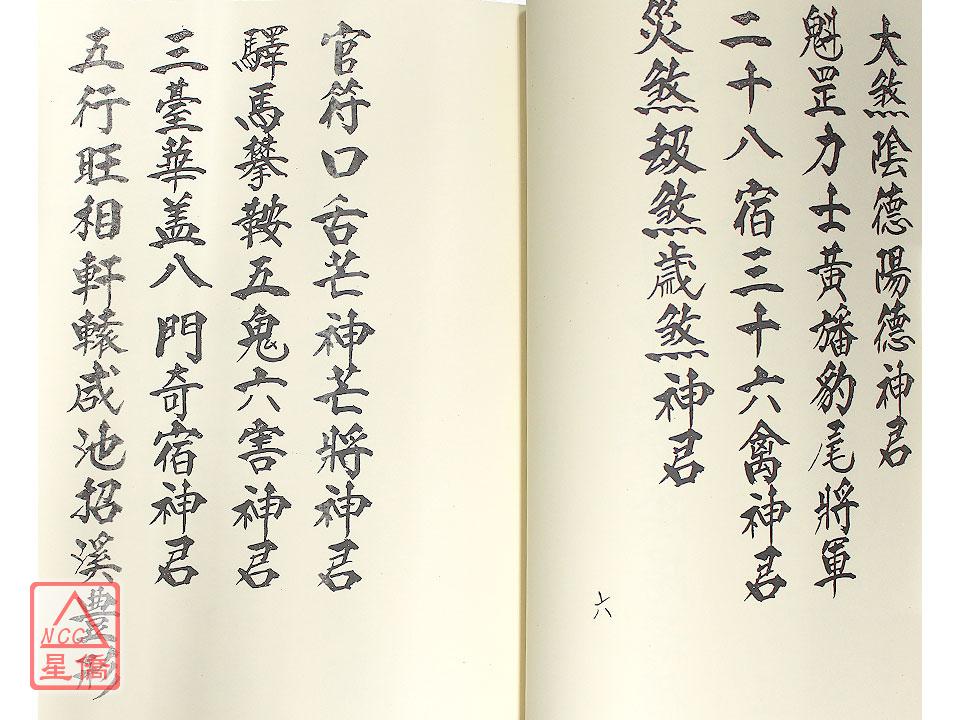 大煞陰德陽德神君
魁罡力士黃旛豹尾將軍
二十八宿三十六禽神君
災煞刼煞歲煞神君
六
官符口舌芒神芒將神君
驛馬攀鞍五鬼六害神君
三臺華盖八門奇宿神君
五行旺相軒轅咸池招溪豊
NCC
星僑